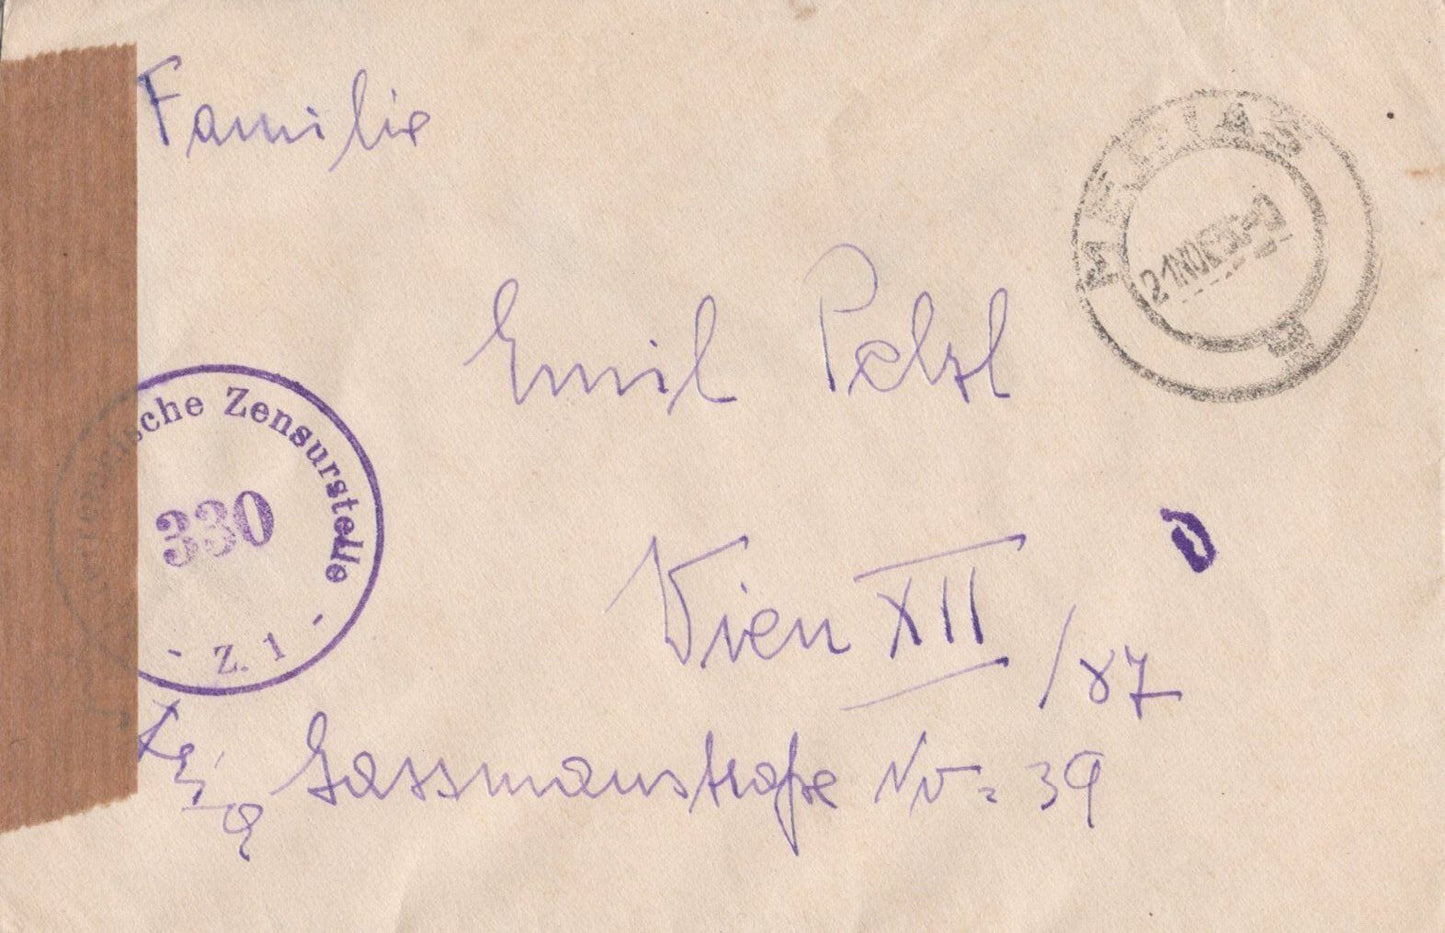 Familie
Emil Pelzl
Wien XII /87
Gassmanstraße No= 39
ische Zensurstelle
330
- Z. 1 -
MEDIAS
21 NOV